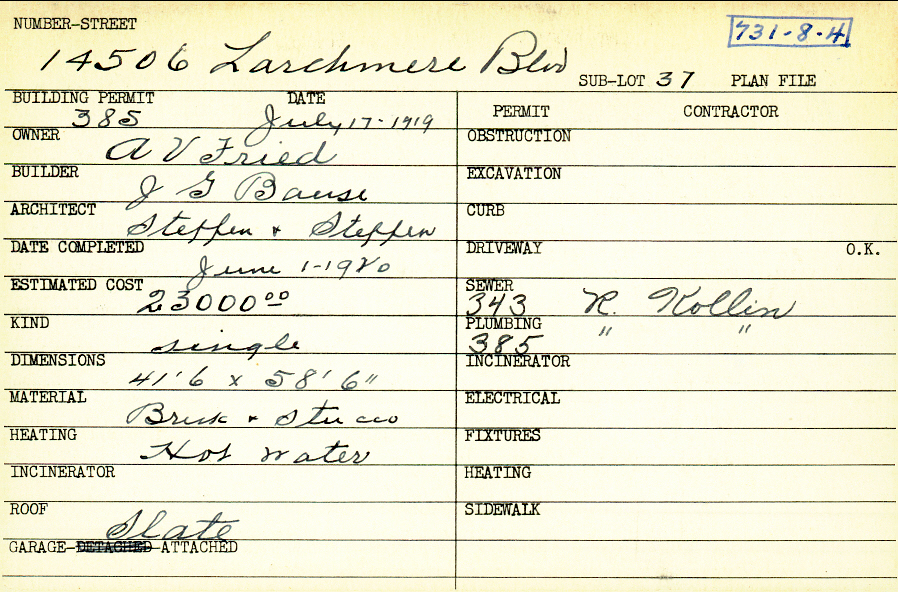 NUMBER-STREET
731-8-4
14506 Larchmere Blvd
SUB-LOT 37 PLAN FILE
BUILDING PERMIT DATE
385 July 17-1919
OWNER
A V Fried
BUILDER
J G Bause
ARCHITECT
Steffen & Steffen
DATE COMPLETED
June 1-1920
ESTIMATED COST
23000 00
KIND
single
DIMENSIONS
41'6 x 58'6"
MATERIAL
Brick & Stucco
HEATING
Hot water
INCINERATOR
ROOF
Slate
GARAGE-DETACHED-ATTACHED
PERMIT CONTRACTOR
OBSTRUCTION
EXCAVATION
CURB
DRIVEWAY O.K.
SEWER
343 R. Kollin
PLUMBING
385 " "
INCINERATOR
ELECTRICAL
FIXTURES
HEATING
SIDEWALK